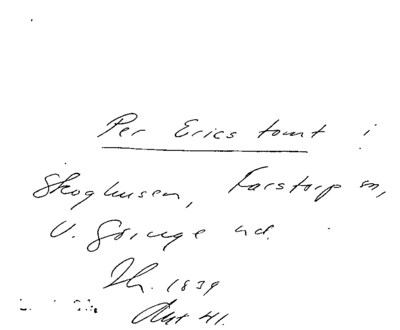 Per Erics tomt i
Skoghusen, Farstorp sn,
V. Göinge hd.
Th. 1839
Aut 41.